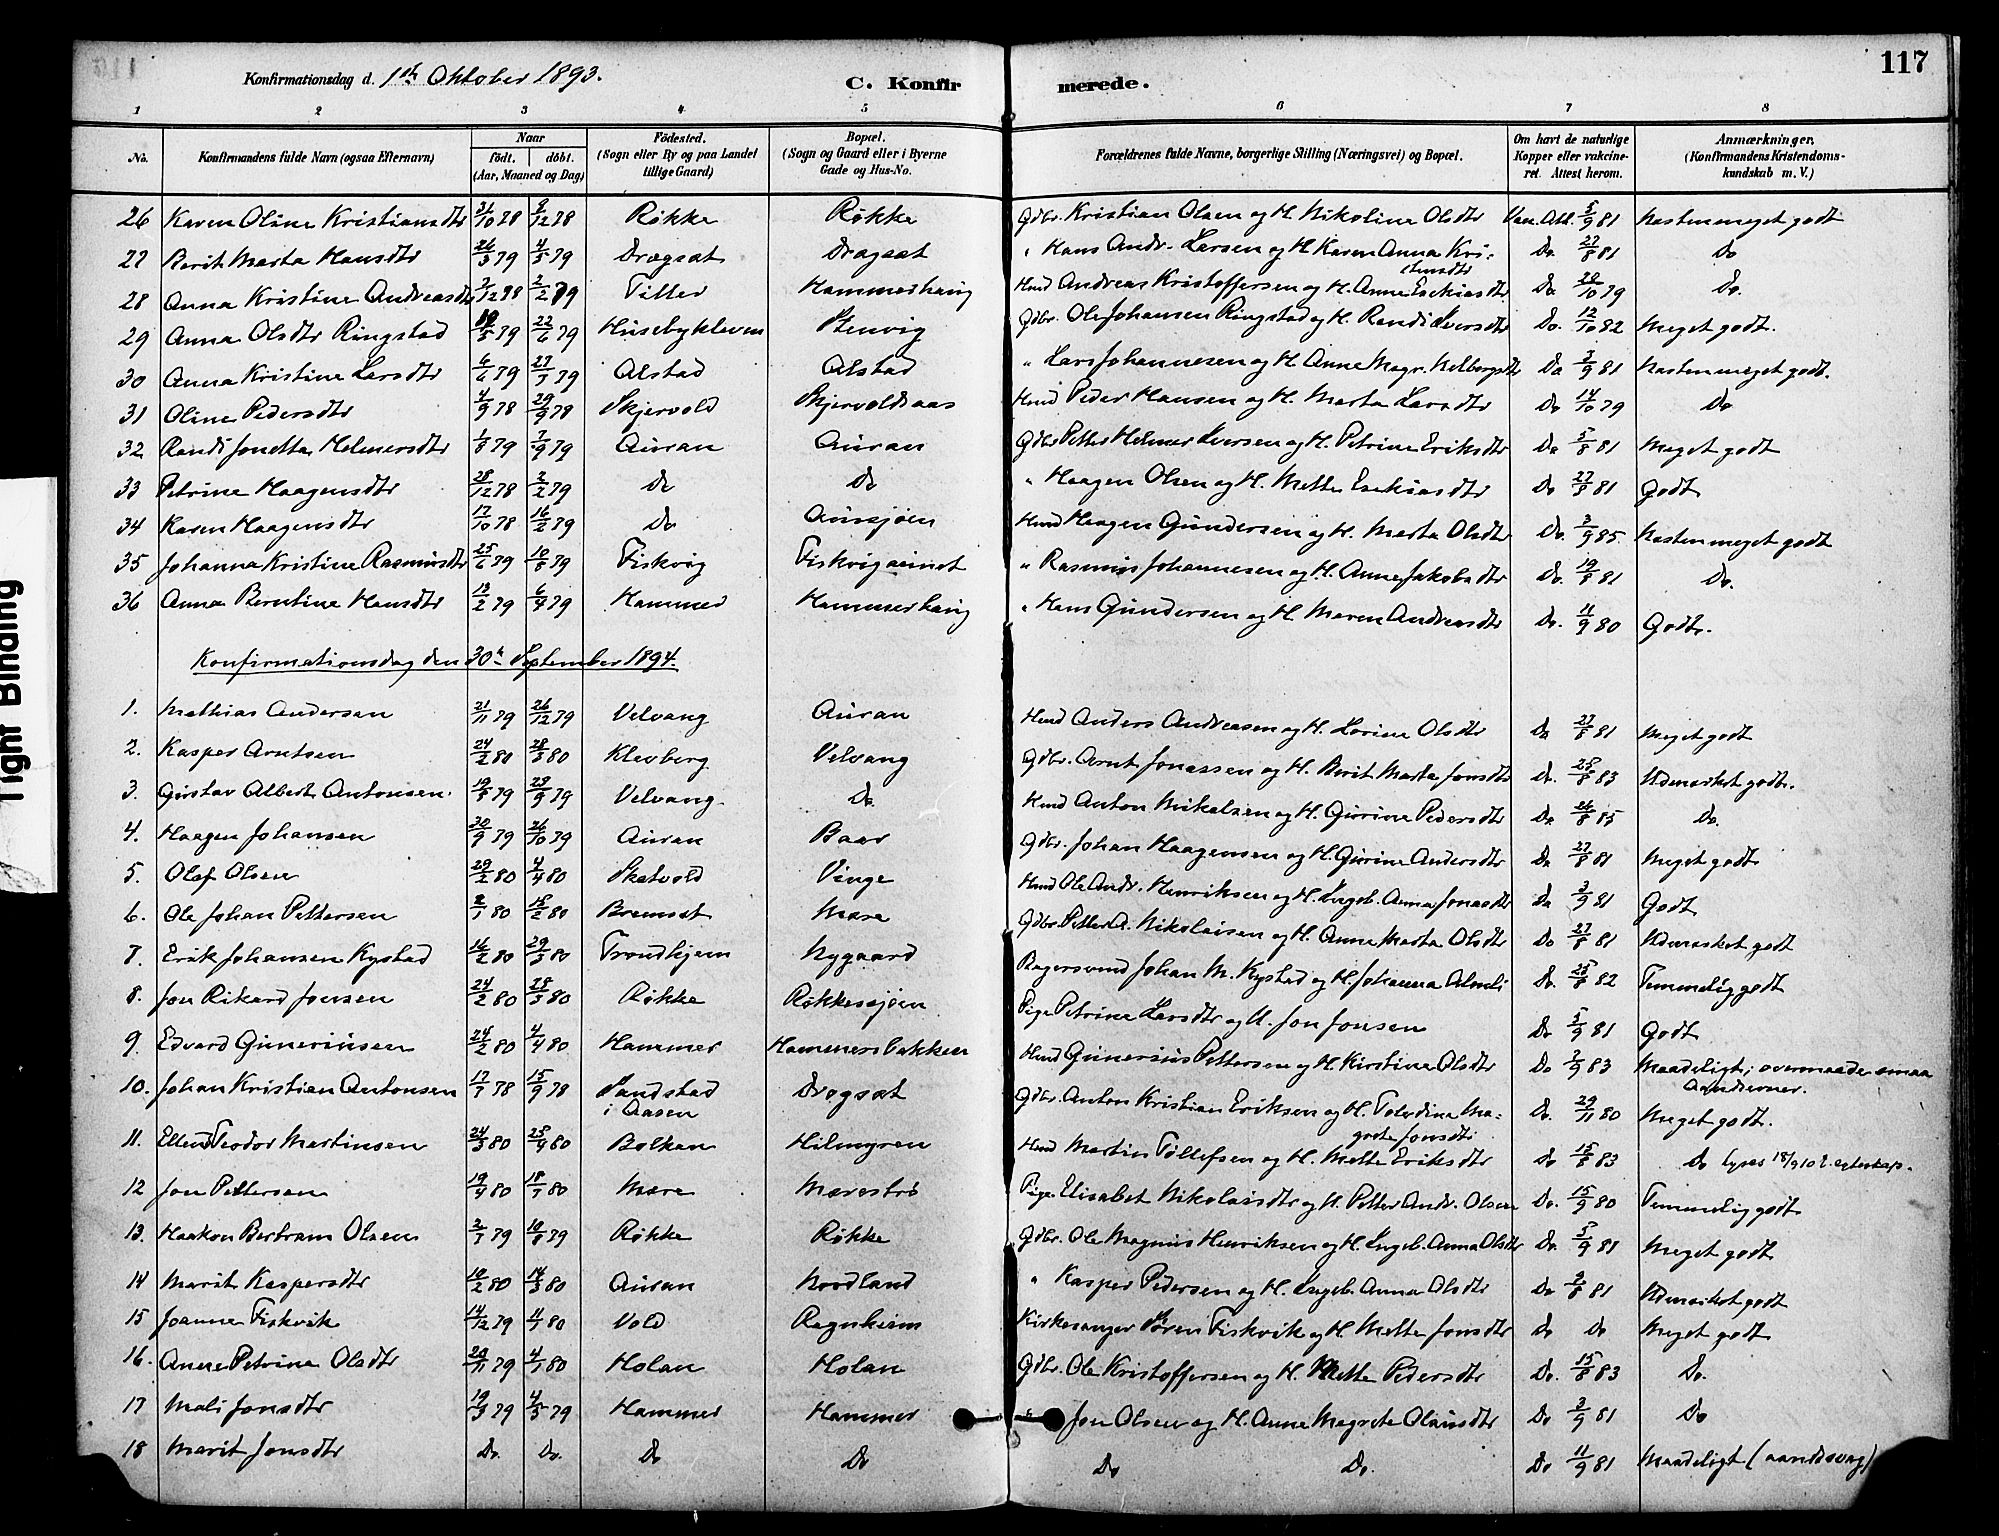 117
Konfirmationsdag d. 1ste Oktober 1893.
C. Konfirmerede.
1 2 3 4 5 6 7 8
No. Konfirmandens fulde Navn (ogsaa Efternavn) Naar födt. döbt. (Aar, Maaned og Dag) Födested. (Sogn eller By og paa Landet tillige Gaard) Bopæl. (Sogn og Gaard eller i Byerne Gade og Hus-No. Forældrenes fulde Navne, borgerlige Stilling (Næringsvei) og Bopæl. Om havt de naturlige Kopper eller vakcineret. Attest herom. Anmærkninger. (Konfirmandens Kristendomskundskab m. V.)
26 Karen Oline Kristiansdtr 31/10 78 8/12 78 Røkke Røkke Gdbr. Kristian Olsen og H. Nikoline Olsdtr Vac. Att. 5/9 81 Næsten meget godt
27 Berit Marta Hansdtr 26/3 79 4/5 79 Drogsæt Drogsæt " Hans Andr. Larsen og H. Karen Anna Kristensdtr Do 27/8 81 Do
28 Anna Kristine Andreasdtr 2/12 78 2/2 79 Tiller Hammerhaug Husmd Andreas Kristoffersen og H. Anne Esekiasdtr Do 20/10 79 Do.
29 Anna Olsdtr Ringstad 19/5 79 22/6 79 Husebykleven Stenvig Gdbr. Ole Johansen Ringstad og H. Randi Iversdtr Do. 12/10 82 Meget godt.
30 Anna Kristine Larsdtr 6/6 79 27/7 79 Alstad Alstad " Lars Johannesen og H. Anne Magr. Kelbergsdtr Do 3/9 81 Næsten meget godt.
31 Oline Pedersdtr 4/9 78 29/9 78 Skjervold Skjervoldsaas Husmd Peder Hansen og H. Marta Larsdtr Do 14/10 79 Do
32 Randi Jonetta Helmersdtr 1/8 79 7/9 79 Auran Auran Gdbr Petter Helmer Iversen og H. Petrine Eriksdtr Do 5/8 81 Meget godt
33 Petrine Haagensdtr 28/12 78 2/2 79 Do Do " Haagen Olsen og H. Mette Esekiasdtr Do 27/8 81 Godt
34 Karen Haagensdtr 17/10 78 16/2 79 Do Aunsjøen Husmd Haagen Gundersen og H. Marta Olsdtr Do. 3/9 85 Næsten meget godt
35 Johanna Kristine Rasmusdtr 25/6 79 10/8 79 Fiskvig Fiskvigaunet " Rasmus Johannesen og H. Anne Jakobsdtr Do. 19/8 81 Do.
36 Anna Berntine Hansdtr 13/2 79 6/4 79 Hammer Hammerhaug " Hans Gundersen og H. Maren Andreasdtr Do. 11/9 80 Godt.
Konfirmationsdag den 30te September 1894.
1. Mathias Andersen 21/11 79 26/12 79 Velvang Auran Husmd Anders Andreasen og H. Lorine Olsdtr Do 27/8 81 Meget godt
2. Kasper Arntsen 24/2 80 28/3 80 Klevberg Velvang Gdbr. Arnt Jonassen og H. Berit Marta Jonsdtr Do. 28/8 83 Udmærket godt.
3. Gustav Albert Antonsen 19/8 79 29/9 79 Velvang Do Husmd Anton Mikalsen og H. Gurine Pedersdtr Do 26/8 85 Do.
4. Haagen Johansen 30/9 79 26/10 79 Auran Baar Gdbr. Johan Haagensen og H. Gurine Andersdtr Do 27/8 81 Meget godt
5. Olaf Olsen 29/2 80 4/4 80 Skatvold Vinge Husmd Ole Andr. Henriksen og H. Ingeb. Anna Jonasdtr Do 3/9 81 Godt
6. Ole Johan Pettersen 2/1 80 15/2 80 Bremset Mære Gdbr Petter A. Nikolaisen og H. Anne Marta Olsdtr Do 27/8 81 Udmærket godt
7. Erik Johansen Kystad 16/2 80 29/3 80 Trondhjem Nygaard Bagersvend Johan M. Kystad og H. Johanna Almli Do. 25/8 82 Temmelig godt
8. Jon Rikard Jonsen 24/2 80 28/3 80 Røkke Røkkessjøen Pige Petrine Larsdtr og U. Jon Jonsen Do 5/9 81 Godt
9. Edvard Gunerinsen 24/2 80 4/4 80 Hammer Hammersbakken Husmd Gunerius Pettersen og H. Kirstine Olsdtr Do 2/9 83 Maadeligt; overmaade smaa Aandsevner.
10. Johan Kristian Antonsen 17/7 78 15/9 78 Sandstad i Aasen Drogsæt Gdbr. Anton Kristian Eriksen og H. Tolerdina Magrete Jonsdtr Do. 29/11 80 Meget godt.
11. Teodor Martinsen 24/3 80 25/4 80 Balkan Hilmyren Husmd Martin Tollefsen og H. Mette Eriksdtr Do 15/8 83 Do lyses 18/9 10 t. egteskap.
12 Jon Pettersen 19/4 80 18/7 80 Mære Mærestrø Pige Elisabet Nikolaisdtr og U. Petter Andr. Olsen Do. 15/9 80 Temmelig godt
13. Haakon Bertram Olsen 2/7 79 10/8 79 Røkke Røkke Gdbr. Ole Magnus Henriksen og H. Ingeb. Anna Olsdtr Do. 5/9 81 Meget godt
14 Marit Kaspersdtr 10/2 80 14/3 80 Auran Nordland " Kasper Pedersen og H. Ingeb. Anna Olsdtr Do 2/8 81 Udmærket godt
15 Joanne Fiskvik 14/12 79 11/1 80 Vold Ragnheim Kirkesanger Søren Fiskvik og H. Mette Jonsdtr Do Do Meget godt
16. Anne Petrine Olsdtr 20/11 79 4/1 80 Holan Holan Gdbr. Ole Kristoffersen og H. Mette Pedersdtr Do. 15/8 83 Do.
17 Mali Jonsdtr 19/3 79 4/5 79 Hammer Hammer " Jon Olsen og H. Anne Magrete Olausdtr Do 3/9 81 Do
18 Marit Jonsdtr Do. Do. Do Do Do Do. Do 11/9 81 Maadeligt (aandssvag)
Tight Binding